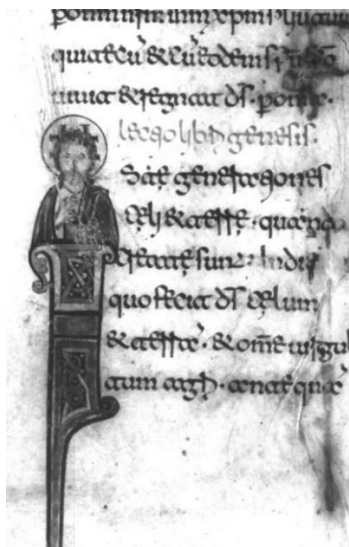 qui tecū & cū eodem
uiuit & regnat d̄s
lectio lib genesis.
Iste generationes
celi & terre. quando
create sunt. In die
quo fecit d̄s celum
& terrā. & om̄e uirgul
tum agri. antequā